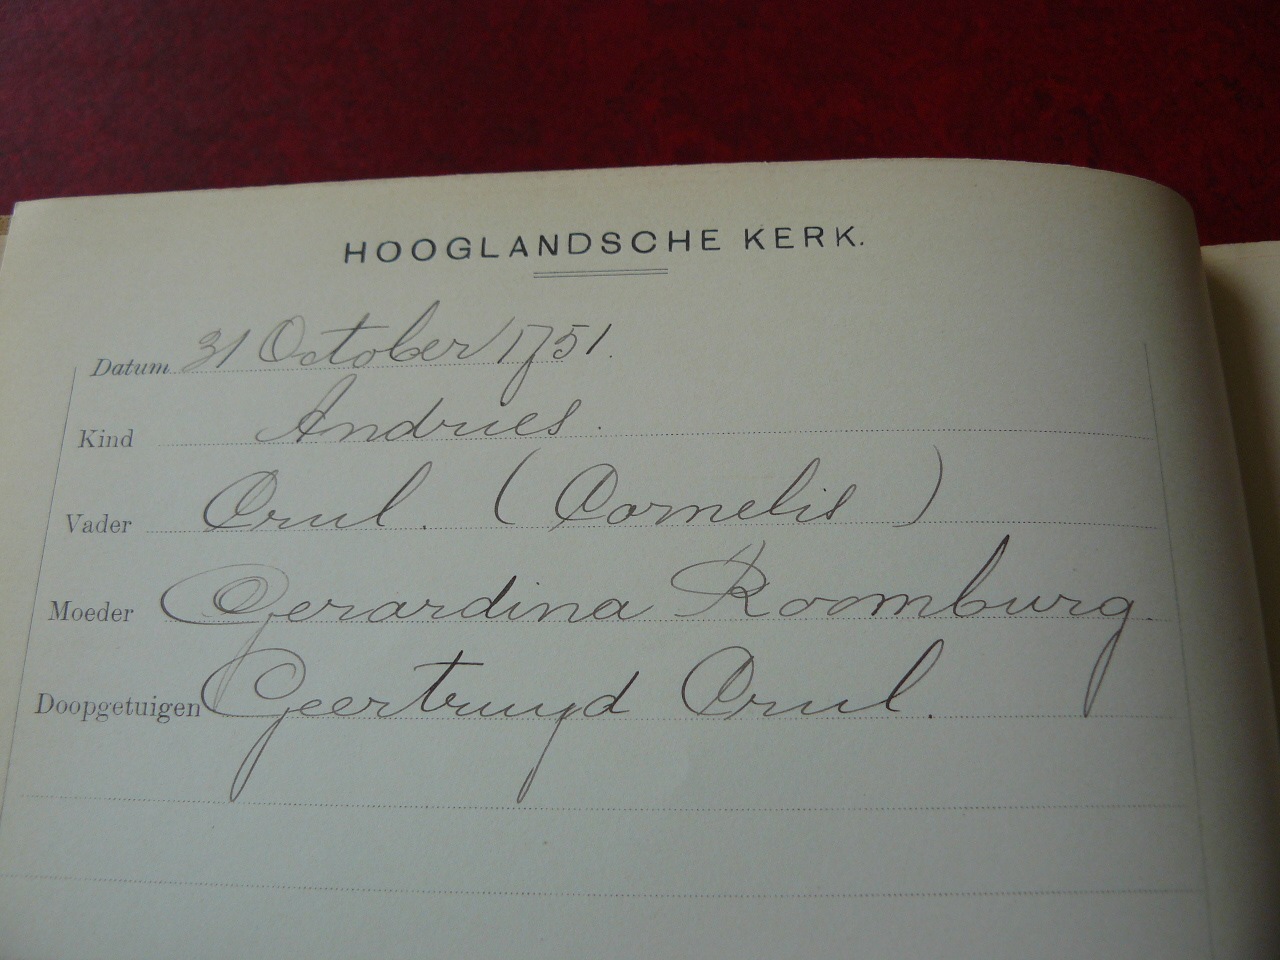 HOOGLANDSCHE KERK.
Datum 31 October 1751.
Kind Andries.
Vader Crul. (Cornelis)
Moeder Gerardina Roomburg.
Doopgetuigen Geertruyd Crul.